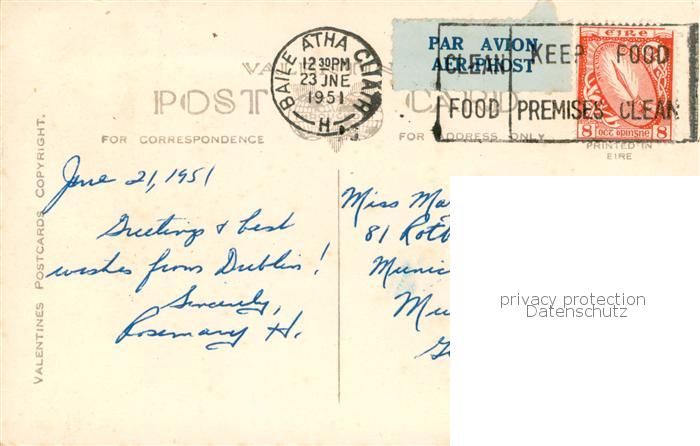 BAILE ATHA CLIATH
12 30PM
23 JNE
1951
H
PAR AVION
AER-PHOST
CLEAN KEEP FOOD
FOOD PREMISES CLEAN
EIRE
8 8
POST CARD
FOR CORRESPONDENCE
FOR ADDRESS ONLY
PRINTED IN
EIRE
VALENTINES POSTCARDS COPYRIGHT.
June 21, 1951
Greetings & best
wishes from Dublin!
Sincerely,
Rosemary H.
Miss Ma
81 Rotb
Munic
Mu
privacy protection
Datenschutz